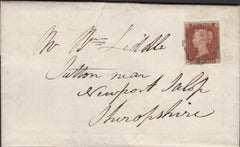 Mr Wm Liddle
Sutton near
Newport Salop
Shropshire